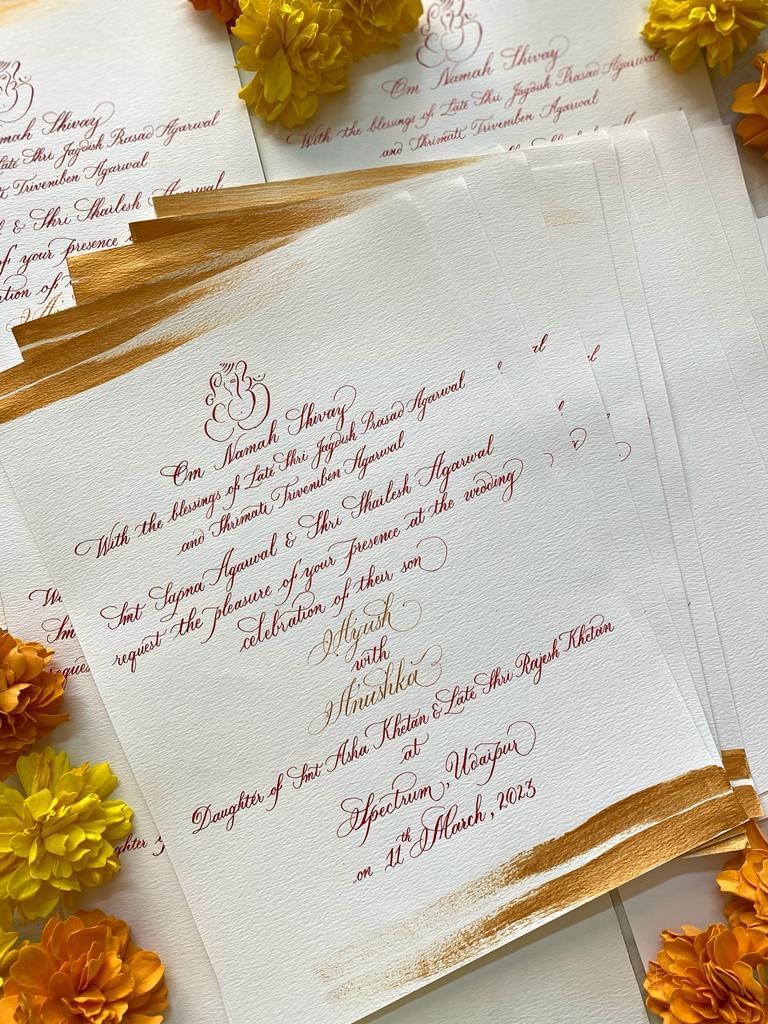 Om Namah Shivay
With the blessings of Late Shri Jagdish Prasad Agarwal
and Shrimati Triveniben Agarwal
Smt Sapna Agarwal & Shri Shailesh Agarwal
request the pleasure of your presence at the wedding
celebration of their son
Ayush
with
Anushka
Daughter of Smt Asha Khetan & Late Shri Rajesh Khetan
at
Spectrum, Udaipur
on 11th March, 2023
Om Namah Shivay
With the blessings of Late Shri Jagdish Prasad Agarwal
and Shrimati Triveniben Agarwal
Shivay
Late Shri Jagdish Prasad Agarwal
Triveniben Agarwal
& Shri Shailesh Agarwal
of your presence